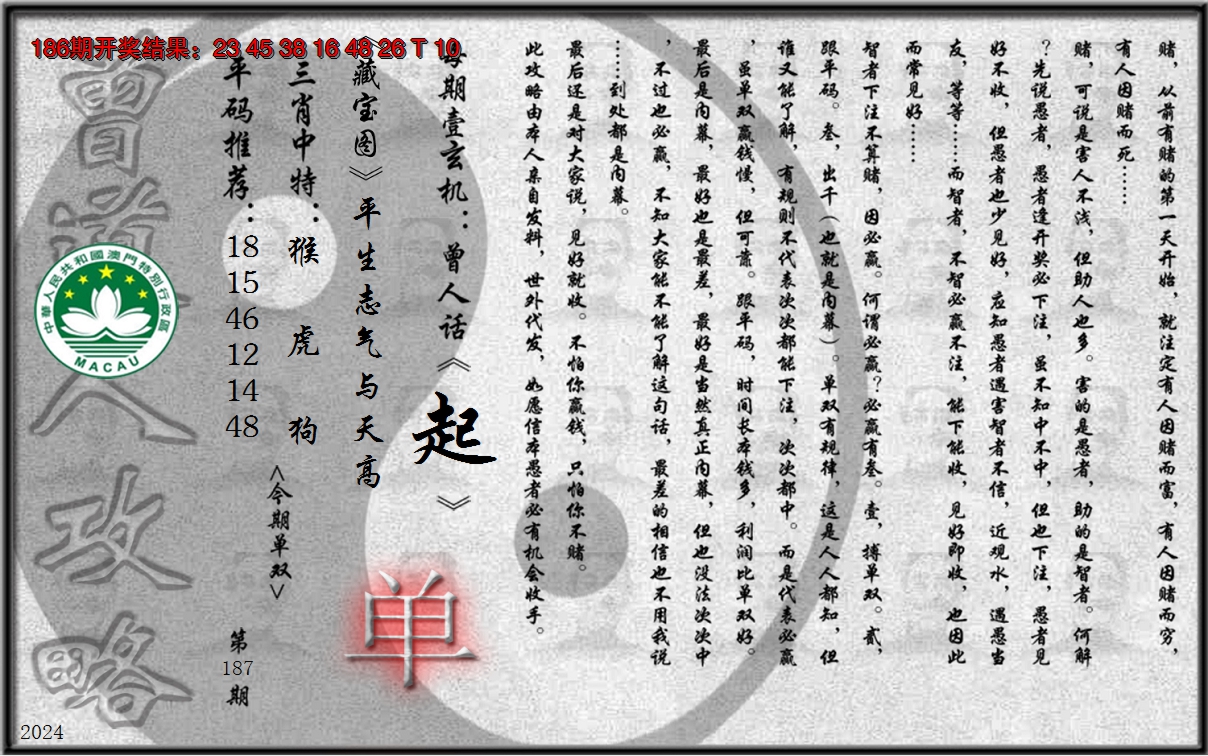 186期开奖结果：23 45 38 16 48 26 T 10
赌，从前有赌的第一天开始，就注定有人因赌而富，有人因赌而穷，
有人因赌而死……
赌，可说是害人不浅，但助人也多。害的是愚者，助的是智者。何解
？先说愚者，愚者逢开奖必下注，虽不知中不中，但也下注，愚者见
好不收，但愚者也少见好，应知愚者遇害智者不信，近观水，遇愚当
友，等等……而智者，不智必赢不注，能下能收，见好即收，也因此
而常见好……
智者下注不算赌，因必赢。何谓必赢？必赢有叁。壹，搏单双。贰，
跟平码。叁，出千（也就是内幕）。单双有规律，这是人人都知，但
谁又能了解，有规则不代表次次都能下注，次次都中。而是代表必赢
，虽单双赢钱慢，但可靠。跟平码，时间长本钱多，利润比单双好。
最后是内幕，最好也是最差，最好是当然真正内幕，但也没法次次中
，不过也必赢，不知大家能不能了解这句话，最差的相信也不用我说
……到处都是内幕。
最后还是对大家说，见好就收。不怕你赢钱，只怕你不赌。
此攻略由本人亲自发料，世外代发，如愿信本愚者必有机会收手。
每期壹玄机：曾人话《起》
《藏宝图》平生志气与天高
单
三肖中特：猴 虎 狗
<今期单双>
平码推荐：18 15 46 12 14 48
第187期
曾道人攻略
中華人民共和國澳門特別行政區
MACAU
2024